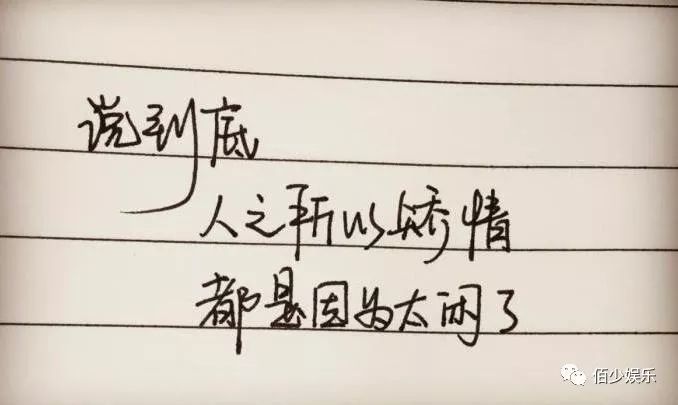 说到底
人之所以矫情
都是因为太闲了
佰少娱乐